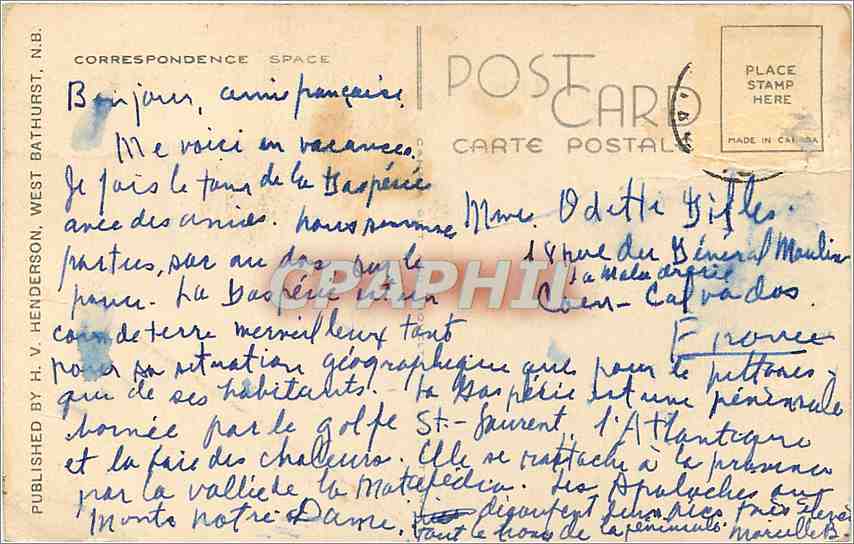 CORRESPONDENCE SPACE
POST CARD
CARTE POSTALE
PLACE
STAMP
HERE
MADE IN CANADA
PUBLISHED BY H. V. HENDERSON, WEST BATHURST, N.B.
Bonjour, amie française.
Me voici en vacances.
Je fais le tour de la Gaspésie
avec des amies. Nous sommes
parties, sac au dos, sur le
pouce. La Gaspésie est un
coin de terre merveilleux tant
pour sa situation géographique que pour le pittores-
que de ses habitants. La Gaspésie est une péninsule
bornée par le golfe St-Laurent, l'Atlantique
et la baie des chaleurs. Elle se rattache à la province
par la vallée de la Matapédia. Les Apalaches ou
Monts Notre-Dame, découpent leurs pics très élevés
tout le long de la péninsule. Marcelle B.
Mme. Odette Gifles.
18 rue du Général Moulin
La Maladrerie
Caen - Calvados.
France
CPAPHIL